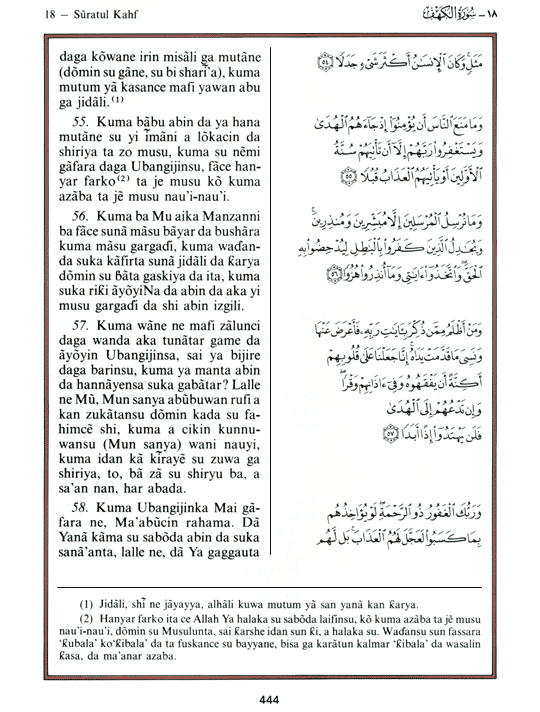 18 — Sūratul Kahf
١٨ – سُورَةُ الْكَهْفِ
daga kōwane irin misāli ga mutāne
(dōmin su gāne, su bi shari'a), kuma
mutum yā kasance mafi yawan abu
ga jidāli.(1)
55. Kuma bābu abin da ya hana
mutāne su yi īmāni a lōkacin da
shiriya ta zo musu, kuma su nēmi
gāfara daga Ubangijinsu, fāce han-
yar farko(2) ta je musu kō kuma
azāba ta jē musu nau'i-nau'i.
56. Kuma ba Mu aika Manzanni
ba fāce sunā māsu bāyar da bushāra
kuma māsu gargaɗi, kuma waɗan-
da suka kāfirta sunā jidāli da ƙarya
dōmin su ɓāta gaskiya da ita, kuma
suka riƙi āyōyiNa da abin da aka yi
musu gargaɗi da shi abin izgili.
57. Kuma wāne ne mafi zālunci
daga wanda aka tunātar game da
āyōyin Ubangijinsa, sai ya bijire
daga barinsu, kuma ya manta abin
da hannāyensa suka gabātar? Lalle
ne Mū, Mun sanya abūbuwan rufi a
kan zukātansu dōmin kada su fa-
himcē shi, kuma a cikin kunnu-
wansu (Mun sanya) wani nauyi,
kuma idan kā kīrayē su zuwa ga
shiriya, to, bā zā su shiryu ba, a
sa'an nan, har abada.
58. Kuma Ubangijinka Mai gā-
fara ne, Ma'abūcin rahama. Dā
Yanā kāma su sabōda abin da suka
sanā'anta, lalle ne, dā Ya gaggauta
مَثَلٍ وَكَانَ الْإِنسَٰنُ أَكْثَرَ شَيْءٍ جَدَلًا ٥٤
وَمَا مَنَعَ النَّاسَ أَن يُؤْمِنُوٓا۟ إِذْ جَآءَهُمُ الْهُدَىٰ
وَيَسْتَغْفِرُوا۟ رَبَّهُمْ إِلَّآ أَن تَأْتِيَهُمْ سُنَّةُ
الْأَوَّلِينَ أَوْ يَأْتِيَهُمُ الْعَذَابُ قُبُلًا ٥٥
وَمَا نُرْسِلُ الْمُرْسَلِينَ إِلَّا مُبَشِّرِينَ وَمُنذِرِينَ
وَيُجَٰدِلُ الَّذِينَ كَفَرُوا۟ بِالْبَٰطِلِ لِيُدْحِضُوا۟ بِهِ
الْحَقَّ وَاتَّخَذُوٓا۟ ءَايَٰتِي وَمَآ أُنذِرُوا۟ هُزُوًا ٥٦
وَمَنْ أَظْلَمُ مِمَّن ذُكِّرَ بِـَٔايَٰتِ رَبِّهِۦ فَأَعْرَضَ عَنْهَا
وَنَسِيَ مَا قَدَّمَتْ يَدَاهُ إِنَّا جَعَلْنَا عَلَىٰ قُلُوبِهِمْ
أَكِنَّةً أَن يَفْقَهُوهُ وَفِيٓ ءَاذَانِهِمْ وَقْرًا
وَإِن تَدْعُهُمْ إِلَى الْهُدَىٰ
فَلَن يَهْتَدُوٓا۟ إِذًا أَبَدًا ٥٧
وَرَبُّكَ الْغَفُورُ ذُو الرَّحْمَةِ لَوْ يُؤَاخِذُهُم
بِمَا كَسَبُوا۟ لَعَجَّلَ لَهُمُ الْعَذَابَ بَل لَّهُم
(1) Jidāli, shī ne jāyayya, alhāli kuwa mutum yā san yanā kan ƙarya.
(2) Hanyar farko ita ce Allah Ya halaka su sabōda laifinsu, kō kuma azāba ta jē musu
nau'i-nau'i, dōmin su Musulunta, sai ƙarshe idan sun ƙi, a halaka su. Waɗansu sun fassara
'ƙubala' ko 'ƙibala' da ta fuskance su bayyane, bisa ga karātun kalmar 'ƙibala' da wasalin
ƙasa, da ma'anar azaba.
444